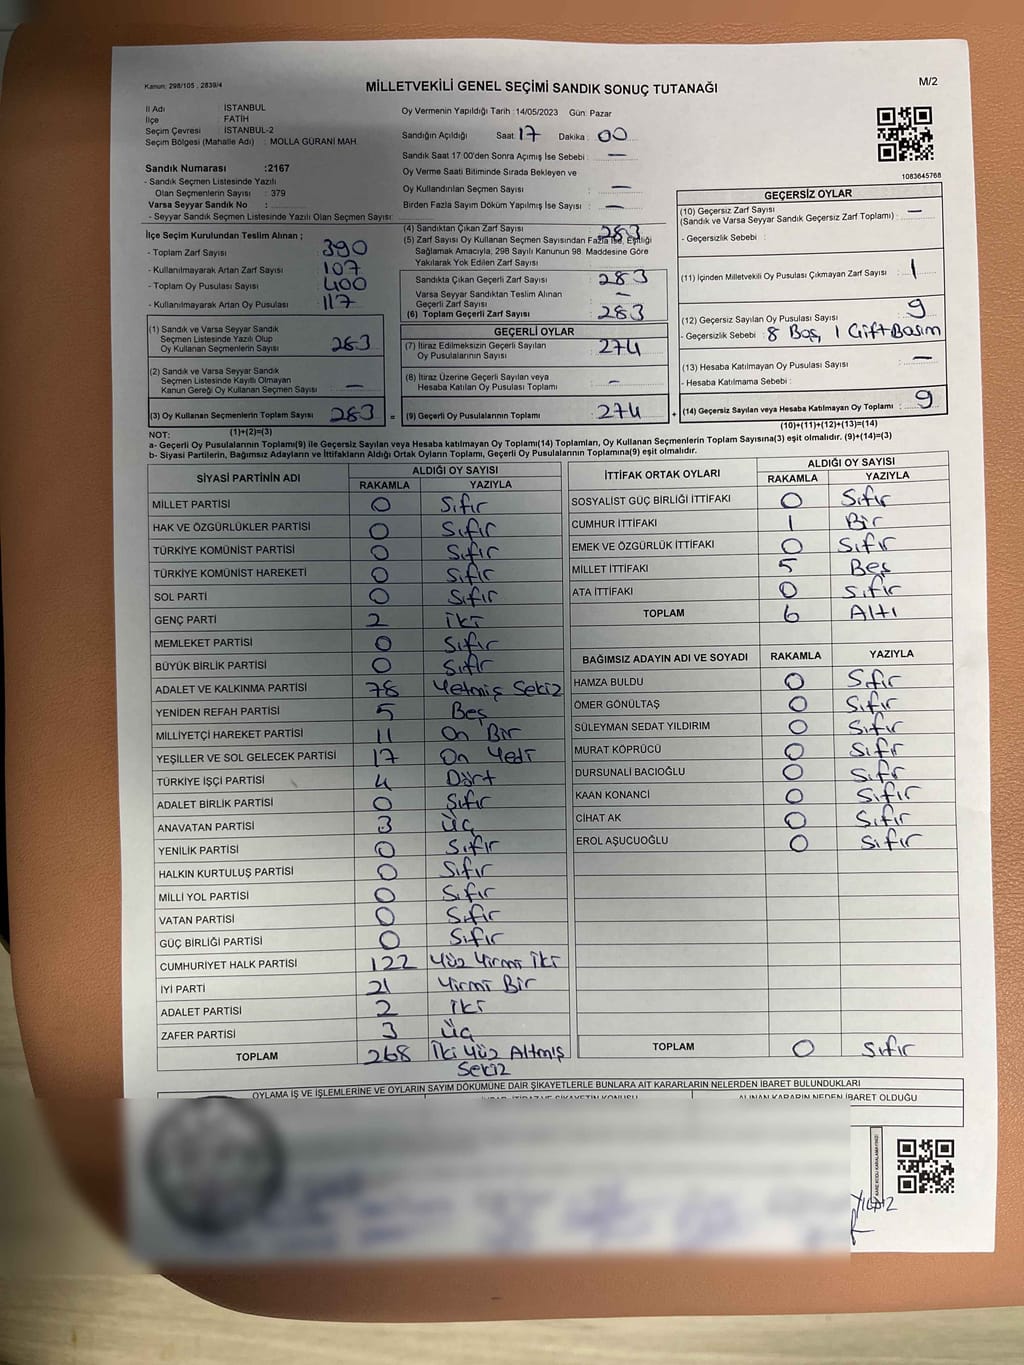 Kanun: 298/105 , 2839/4
MİLLETVEKİLİ GENEL SEÇİMİ SANDIK SONUÇ TUTANAĞI
M/2
İl Adı : İSTANBUL
İlçe : FATİH
Seçim Çevresi : İSTANBUL-2
Seçim Bölgesi (Mahalle Adı) : MOLLA GÜRANİ MAH.
Sandık Numarası :2167
- Sandık Seçmen Listesinde Yazılı
Olan Seçmenlerin Sayısı : 379
Varsa Seyyar Sandık No :
- Seyyar Sandık Seçmen Listesinde Yazılı Olan Seçmen Sayısı:
Oy Vermenin Yapıldığı Tarih :14/05/2023 Gün: Pazar
Sandığın Açıldığı Saat: 17 Dakika : 00
Sandık Saat 17 00'den Sonra Açımış İse Sebebi : —
Oy Verme Saati Bitiminde Sırada Bekleyen ve
Oy Kullandırılan Seçmen Sayısı : —
Birden Fazla Sayım Döküm Yapılmış İse Sayısı : —
1083645768
İlçe Seçim Kurulundan Teslim Alınan ;
- Toplam Zarf Sayısı : 390
- Kullanılmayarak Artan Zarf Sayısı : 107
- Toplam Oy Pusulası Sayısı : 400
- Kullanılmayarak Artan Oy Pusulası : 117
(1) Sandık ve Varsa Seyyar Sandık
Seçmen Listesinde Yazılı Olup
Oy Kullanan Seçmenlerin Sayısı : 283
(2) Sandık ve Varsa Seyyar Sandık
Seçmen Listesinde Kayıtlı Olmayan
Kanun Gereği Oy Kullanan Seçmen Sayısı : —
(3) Oy Kullanan Seçmenlerin Toplam Sayısı : 283 =
(1)+(2)=(3)
(4) Sandıktan Çıkan Zarf Sayısı : 283
(5) Zarf Sayısı Oy Kullanan Seçmen Sayısından Fazla İse, Eşitliği
Sağlamak Amacıyla, 298 Sayılı Kanunun 98. Maddesine Göre
Yakılarak Yok Edilen Zarf Sayısı :
Sandıkta Çıkan Geçerli Zarf Sayısı : 283
Varsa Seyyar Sandıktan Teslim Alınan
Geçerli Zarf Sayısı : —
(6) Toplam Geçerli Zarf Sayısı : 283
GEÇERLİ OYLAR
(7) İtiraz Edilmeksizin Geçerli Sayılan
Oy Pusulalarının Sayısı : 274
(8) İtiraz Üzerine Geçerli Sayılan veya
Hesaba Katılan Oy Pusulası Toplamı : —
(9) Geçerli Oy Pusulalarının Toplamı : 274 +
GEÇERSİZ OYLAR
(10) Geçersiz Zarf Sayısı : —
(Sandık ve Varsa Seyyar Sandık Geçersiz Zarf Toplamı)
- Geçersizlik Sebebi :
(11) İçinden Milletvekili Oy Pusulası Çıkmayan Zarf Sayısı : 1
(12) Geçersiz Sayılan Oy Pusulası Sayısı : 9
- Geçersizlik Sebebi : 8 Boş, 1 Çift Basım
(13) Hesaba Katılmayan Oy Pusulası Sayısı : —
- Hesaba Katılmama Sebebi :
(14) Geçersiz Sayılan veya Hesaba Katılmayan Oy Toplamı : 9
(10)+(11)+(12)+(13)=(14)
NOT:
a- Geçerli Oy Pusulalarının Toplamı(9) ile Geçersiz Sayılan veya Hesaba katılmayan Oy Toplamı(14) Toplamları, Oy Kullanan Seçmenlerin Toplam Sayısına(3) eşit olmalıdır. (9)+(14)=(3)
b- Siyasi Partilerin, Bağımsız Adayların ve İttifakların Aldığı Ortak Oyların Toplamı, Geçerli Oy Pusulalarının Toplamına(9) eşit olmalıdır.
SİYASİ PARTİNİN ADI ALDIĞI OY SAYISI
RAKAMLA YAZIYLA
MİLLET PARTİSİ 0 Sıfır
HAK VE ÖZGÜRLÜKLER PARTİSİ 0 Sıfır
TÜRKİYE KOMÜNİST PARTİSİ 0 Sıfır
TÜRKİYE KOMÜNİST HAREKETİ 0 Sıfır
SOL PARTİ 0 Sıfır
GENÇ PARTİ 2 İki
MEMLEKET PARTİSİ 0 Sıfır
BÜYÜK BİRLİK PARTİSİ 0 Sıfır
ADALET VE KALKINMA PARTİSİ 78 Yetmiş Sekiz
YENİDEN REFAH PARTİSİ 5 Beş
MİLLİYETÇİ HAREKET PARTİSİ 11 On Bir
YEŞİLLER VE SOL GELECEK PARTİSİ 17 On Yedi
TÜRKİYE İŞÇİ PARTİSİ 4 Dört
ADALET BİRLİK PARTİSİ 0 Sıfır
ANAVATAN PARTİSİ 3 Üç
YENİLİK PARTİSİ 0 Sıfır
HALKIN KURTULUŞ PARTİSİ 0 Sıfır
MİLLİ YOL PARTİSİ 0 Sıfır
VATAN PARTİSİ 0 Sıfır
GÜÇ BİRLİĞİ PARTİSİ 0 Sıfır
CUMHURİYET HALK PARTİSİ 122 Yüz Yirmi İki
İYİ PARTİ 21 Yirmi Bir
ADALET PARTİSİ 2 İki
ZAFER PARTİSİ 3 Üç
TOPLAM 268 İki Yüz Altmış
Sekiz
İTTİFAK ORTAK OYLARI ALDIĞI OY SAYISI
RAKAMLA YAZIYLA
SOSYALİST GÜÇ BİRLİĞİ İTTİFAKI 0 Sıfır
CUMHUR İTTİFAKI 1 Bir
EMEK VE ÖZGÜRLÜK İTTİFAKI 0 Sıfır
MİLLET İTTİFAKI 5 Beş
ATA İTTİFAKI 0 Sıfır
TOPLAM 6 Altı
BAĞIMSIZ ADAYIN ADI VE SOYADI RAKAMLA YAZIYLA
HAMZA BULDU 0 Sıfır
ÖMER GÖNÜLTAŞ 0 Sıfır
SÜLEYMAN SEDAT YILDIRIM 0 Sıfır
MURAT KÖPRÜCÜ 0 Sıfır
DURSUNALİ BACIOĞLU 0 Sıfır
KAAN KONANCİ 0 Sıfır
CİHAT AK 0 Sıfır
EROL AŞUCUOĞLU 0 Sıfır
TOPLAM 0 Sıfır
OYLAMA İŞ VE İŞLEMLERİNE VE OYLARIN SAYIM DÖKÜMÜNE DAİR ŞİKAYETLERLE BUNLARA AİT KARARLARIN NELERDEN İBARET BULUNDUKLARI
ALINAN KARARIN NEDEN İBARET OLDUĞU